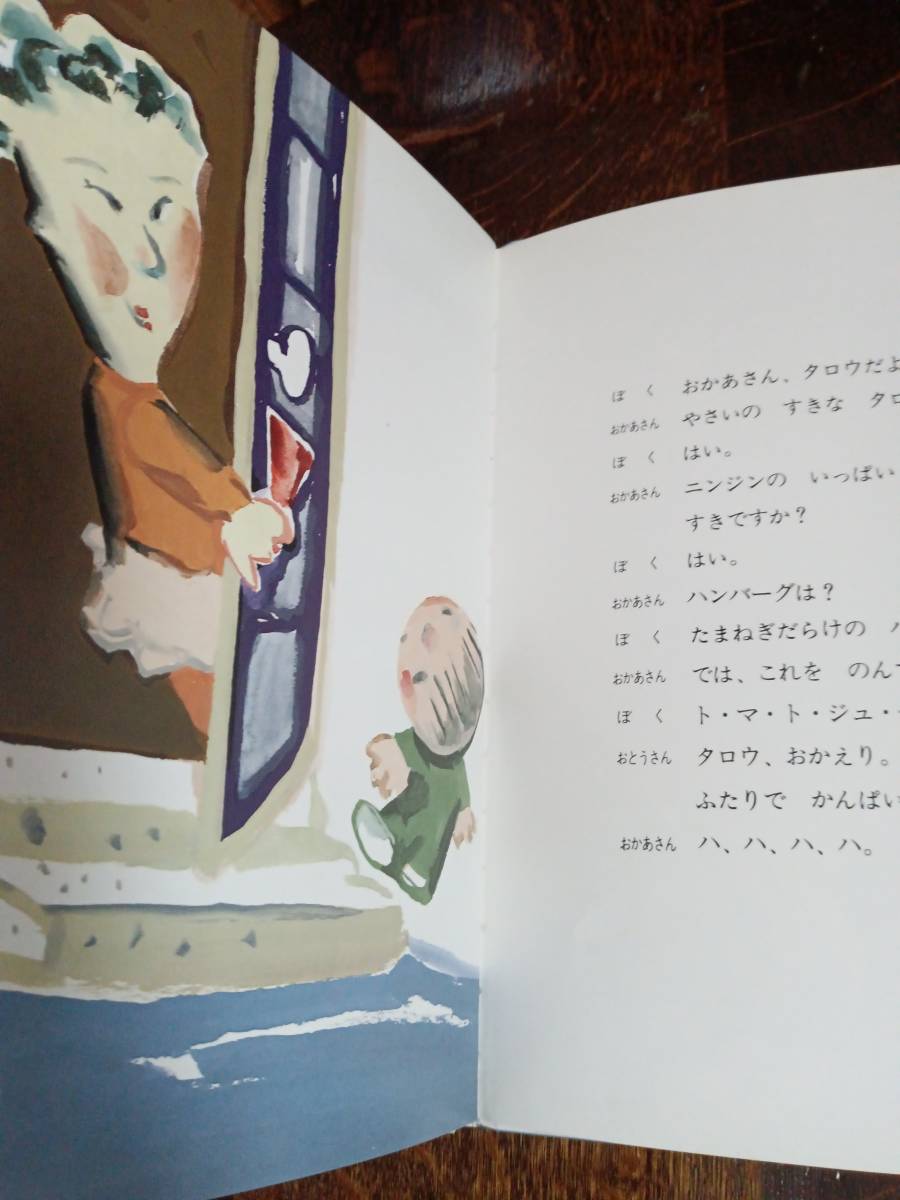 ぼく おかあさん、タロウだよ
おかあさん やさいの すきな タロ
ぼく はい。
おかあさん ニンジンの いっぱい
すきですか？
ぼく はい。
おかあさん ハンバーグは？
ぼく たまねぎだらけの
おかあさん では、これを のんで
ぼく ト・マ・ト・ジュ・
おとうさん タロウ、おかえり。
ふたりで かんぱい
おかあさん ハ、ハ、ハ、ハ。